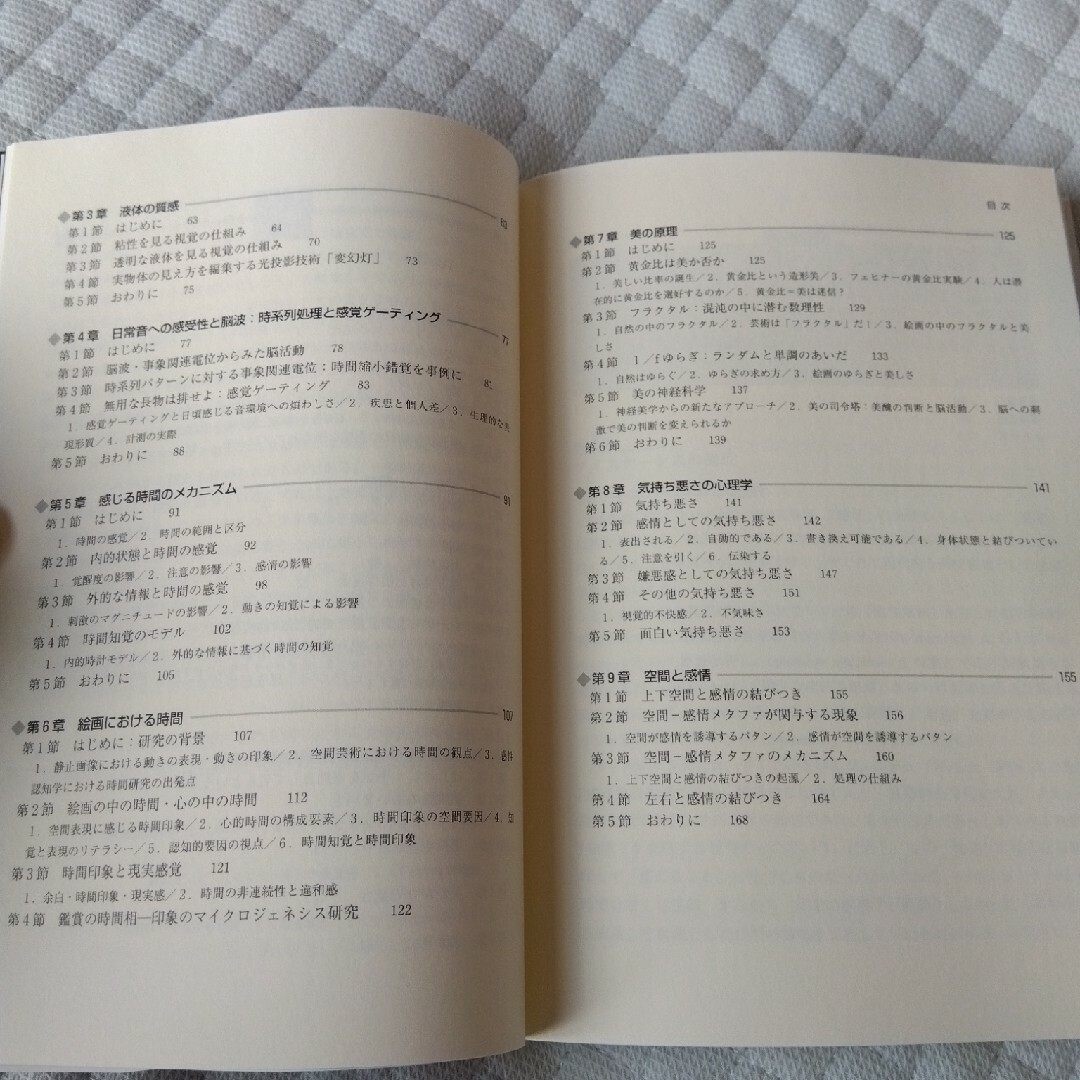 ◆第3章 液体の質感 63
第1節 はじめに 63
第2節 粘性を見る視覚の仕組み 64
第3節 透明な液体を見る視覚の仕組み 70
第4節 実物体の見え方を編集する光投影技術「変幻灯」 73
第5節 おわりに 75
◆第4章 日常音への感受性と脳波：時系列処理と感覚ゲーティング 77
第1節 はじめに 77
第2節 脳波・事象関連電位からみた脳活動 78
第3節 時系列パターンに対する事象関連電位：時間縮小錯覚を事例に
第4節 無用な長物は排せよ：感覚ゲーティング 83
1．感覚ゲーティングと日頃感じる音環境への煩わしさ／2．疾患と個人差／3．生理的な表
現形質／4．計測の実際
第5節 おわりに 88
◆第5章 感じる時間のメカニズム 91
第1節 はじめに 91
1．時間の感覚／2 時間の範囲と区分
第2節 内的状態と時間の感覚 92
1．覚醒度の影響／2．注意の影響／3．感情の影響
第3節 外的な情報と時間の感覚 98
1．刺激のマグニチュードの影響／2．動きの知覚による影響
第4節 時間知覚のモデル 102
1．内的時計モデル／2．外的な情報に基づく時間の知覚
第5節 おわりに 105
◆第6章 絵画における時間 107
第1節 はじめに：研究の背景 107
1．静止画像における動きの表現・動きの印象／2．空間芸術における時間の観点／3．感性
認知学における時間研究の出発点
第2節 絵画の中の時間・心の中の時間 112
1．空間表現に感じる時間印象／2．心的時間の構成要素／3．時間印象の空間要因／4．
覚と表現のリテラシー／5．認知的要因の視点／6．時間知覚と時間印象
第3節 時間印象と現実感覚 121
1．余白・時間印象・現実感／2．時間の非連続性と違和感
第4節 鑑賞の時間相―印象のマイクロジェネシス研究 122
目次
◆第7章 美の原理 125
第1節 はじめに 125
第2節 黄金比は美か否か 125
1．美しい比率の誕生／2．黄金比という造形美／3．フェヒナーの黄金比実験／4．人は潜
在的に黄金比を選好するのか／5．黄金比＝美は迷信？
第3節 フラクタル：混沌の中に潜む数理性 129
1．自然の中のフラクタル／2．芸術は「フラクタル」だ！／3．絵画の中のフラクタルと美
しさ
第4節 1／fゆらぎ：ランダムと単調のあいだ 133
1．自然はゆらぐ／2．ゆらぎの求め方／3．絵画のゆらぎと美しさ
第5節 美の神経科学 137
1．神経美学からの新たなアプローチ／2．美の司令塔：美醜の判断と脳活動／3．脳への刺
激で美の判断を変えられるか
第6節 おわりに 139
◆第8章 気持ち悪さの心理学 141
第1節 気持ち悪さ 141
第2節 感情としての気持ち悪さ 142
1．表出される／2．自動的である／3．書き換え可能である／4．身体状態と結びついてい
る／5．注意を引く／6．伝染する
第3節 嫌悪感としての気持ち悪さ 147
第4節 その他の気持ち悪さ 151
1．視覚的不快感／2．不気味さ
第5節 面白い気持ち悪さ 153
◆第9章 空間と感情 155
第1節 上下空間と感情の結びつき 155
第2節 空間－感情メタファが関与する現象 156
1．空間が感情を誘導するパタン／2．感情が空間を誘導するパタン
第3節 空間－感情メタファのメカニズム 160
1．上下空間と感情の結びつきの起源／2．処理の仕組み
第4節 左右と感情の結びつき 164
第5節 おわりに 168